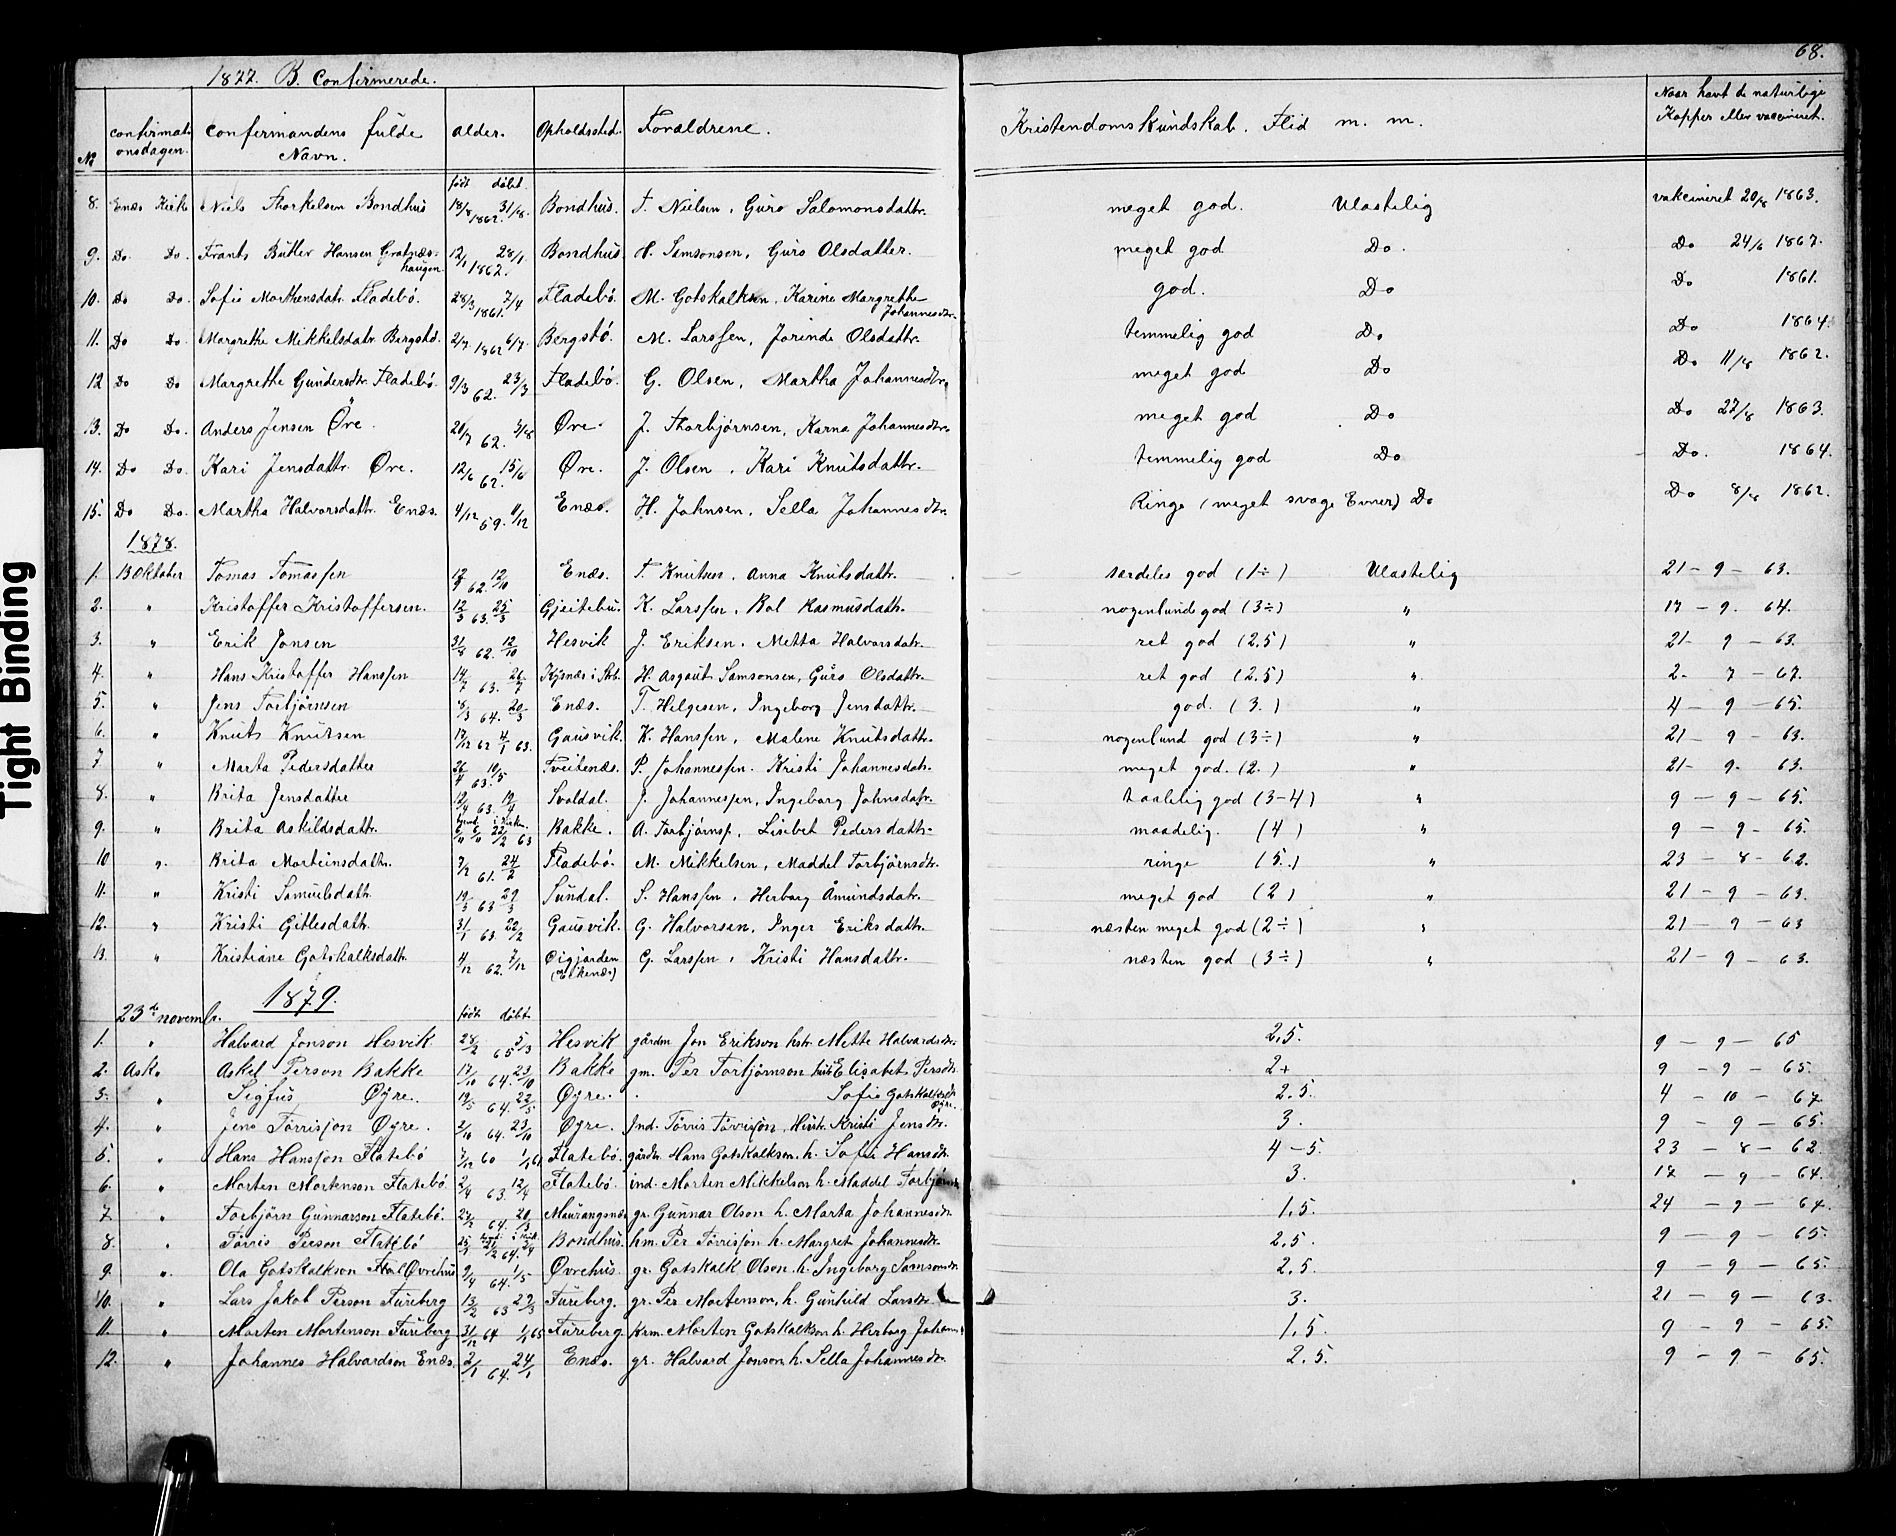 68.
1877. B. Confirmerede.
No | Confirmationsdagen. | Confirmandens fulde Navn. | Alder. | Opholdssted. | Forældrene. | Kristendomskundskab. Flid m. m. | Naar havt de naturlige Kopper eller vaccineret.
født døbt
8. Enæs Kirke Niels Thorkelsen Bondhus 18/8 1862. 31/8. Bondhus. T. Nielsen, Guro Salomonsdattr. meget god. Ulastelig vakcineret 20/8 1863.
9. Do Do. Frants Butler Hansen Gratnæshaugen 12/1 1862. 28/1 Bondhus H. Samsonsen, Guro Olsdatter. meget god Do. Do 24/6 1867.
10. Do Do. Sofie Morthensdatr. Fladebö. 28/3 1861. 7/4 Fladebö. M. Gotskalksen, Karine Margrethe Johannesdtr. god. Do Do 1861.
11. Do Do. Margrethe Mikkelsdatr. Bergstö. 2/7 1862 6/7 Bergstö. M. Larssen, Jorinde Olsdattr. temmelig god Do Do 1864.
12 Do Do Margrethe Gundersdtr. Fladebö. 9/3 62. 23/3 Fladebö. G. Olsen, Martha Johannesdtr. meget god Do Do 11/8 1862.
13. Do Do. Anders Jensen Öre. 20/7 62. 3/8 Øre. J. Thorbjörnsen, Karna Johannesdtr. meget god Do Do 27/8 1863.
14. Do Do. Kari Jensdattr. Øre. 12/6 62. 15/6 Øre. J. Olsen, Kari Knutsdattr. temmelig god Do Do. 1864.
15. Do Do. Martha Halvorsdattr. Enæs. 4/12 59. 11/12 Enæs. H. Johnsen, Sella Johannesdtr. Ringe (meget svage Evner) Do Do 8/8 1862.
1878.
1. 13 Oktober Tomas Tomassen 17/9 62. 12/10 Enæs. T. Knutsen, Anna Knutsdattr. særdeles god (1÷) Ulastelig 21 – 9 – 63.
2. " Kristoffer Kristoffersen. 12/3 63. 25/3 Gjeitebu. K. Larssen, Bol Rasmusdattr. nogenlund god (3÷) " 17 – 9. 64.
3. " Erik Jonsen 31/8 62. 12/10 Hesvik J. Eriksen, Metta Halvorsdatr. ret god (2.5) " 21 – 9 – 63.
4. " Hans Kristoffer Hanssen 14/7 63. 26/7 Kysnæs i Stb. H. Asgaut Samsonsen, Guro Olsdattr. ret god (2.5) " 2. 7 – 67.
5. " Jens Torbjörnsen 6/3 64. 20/3 Enæs. T. Helgesen, Ingeborg Jensdattr. god. (3.) " 4 – 9 – 65.
6. " Knut Knutsen 17/12 62 4/1 63. Gausvik. K. Hanssen, Malene Knutsdattr. nogenlund god (3÷) " 21 – 9 – 63.
7 " Marta Pedersdatter 26/4 63. 10/5 Tveitenæs. P. Johannessen. Kristi Johannesdatr. meget god. (2.) " 21 – 9. 63.
8. " Brita Jensdatter 12/4 63 19/4 Svoldal. J. Johannessen, Ingeborg Johnsdatr. taalelig god (3-4) " 9 – 9 – 65.
9. " Brita Askildsdattr. 22/2 63 Bakke. A. Torbjörns., Lisebet Pedersdattr. maadelig. (4) " 9 – 9 – 65.
10 " Brita Morteinsdattr. 7/2 61. 24/2 Fladebö. M. Mikkelsen, Maddel Torbjörnsdtr. ringe (5.) " 23 – 8 – 62.
11. " Kristi Samuelsdatr. 19/3 63 29/3 Sundal. S. Hanssen, Herborg Åmundsdatr. meget god (2) " 21 – 9 – 63.
12. " Kristi Gitlesdattr. 31/1 63. 22/2 Gausvik. G. Halvorsen, Inger Eriksdattr. næsten meget god (2÷) " 21 – 9 – 63
13. " Kristiane Gotskalksdattr. 4/12 62. 7/12 Øigjorden (Ækenæs) G. Larssen, Kristi Hansdattr. næsten god (3÷) " 21 – 9 – 63.
1879.
23de novembr. født døbt
1. " Halvard Jonson Hesvik 28/2 65 5/3 Hesvik gårdm Jon Erikson hstr. Mette Halvardsdtr. 2.5. 9 – 9 – 65
2. Ask. Askel Person Bakke 17/10 64. 23/10 Bakke gm. Per Torbjörnson Elisabet Persdtr. 2+ 9 – 9 – 65.
3. " Sigfus Øyre. 19/5 64. 22/5 Øyre. Sofie Gotskalksdtr. Øyre. 2.5. 4 – 10 – 67
4. " Jens Törrisson Øyre. 2/10 64. 23/10 Øyre. Ind. Törris Törrisson, Hustr. Kristi Jensdtr. 3. 9 – 9 – 65.
5. " Hans Hansson Flatebö 7/12 60 1/1 61 Flatebö. gårdm. Hans Gotskalkson. h. Sofie Hansdtr. 4–5. 23 – 8 – 62.
6. " Morten Mortenson Flatebö. 2/4 63. 12/4 Flatebö. ind. Morten Mikkelson h. Maddel Torbjörnsdtr 3. 17 – 9 – 64.
7. " Torbjörn Gunnarson Flatebö. 27/2 64. 20/3 Maurangsnæs gr. Gunnar Olson h. Marta Johannesdtr. 1.5. 24 – 9 – 64.
8. " Törris Person Flatebö 64. Bondhus. hm. Per Törrisson h. Margret Johannesdtr. 2.5. 9 – 9 – 65.
9. " Ola Gotskalkson Øvrehus 9/4 64. 1/5 Øvrehus. gr. Gotskalk Olson h. Ingeborg Samsonsdtr 2.5. 9 – 9 – 65.
10. " Lars Jakob Person Fureberg 13/2 63 29/3 Fureberg. gr. Per Mortenson, h. Gunhild Larsdtr. 3. 21 – 9 – 63.
11. " Morten Mortenson Fureberg 31/12 64 1/1 65 Fureberg. Krm. Morten Gotskalkson h. Herborg Johann 1.5. 9 – 9 – 65.
12. " Johannes Halvardson Enæs. 2/1 64. 24/1 Enæs. gr. Halvard Jonson h. Sella Johannesdtr. 2.5. 9 – 9 – 65.
Tight Binding